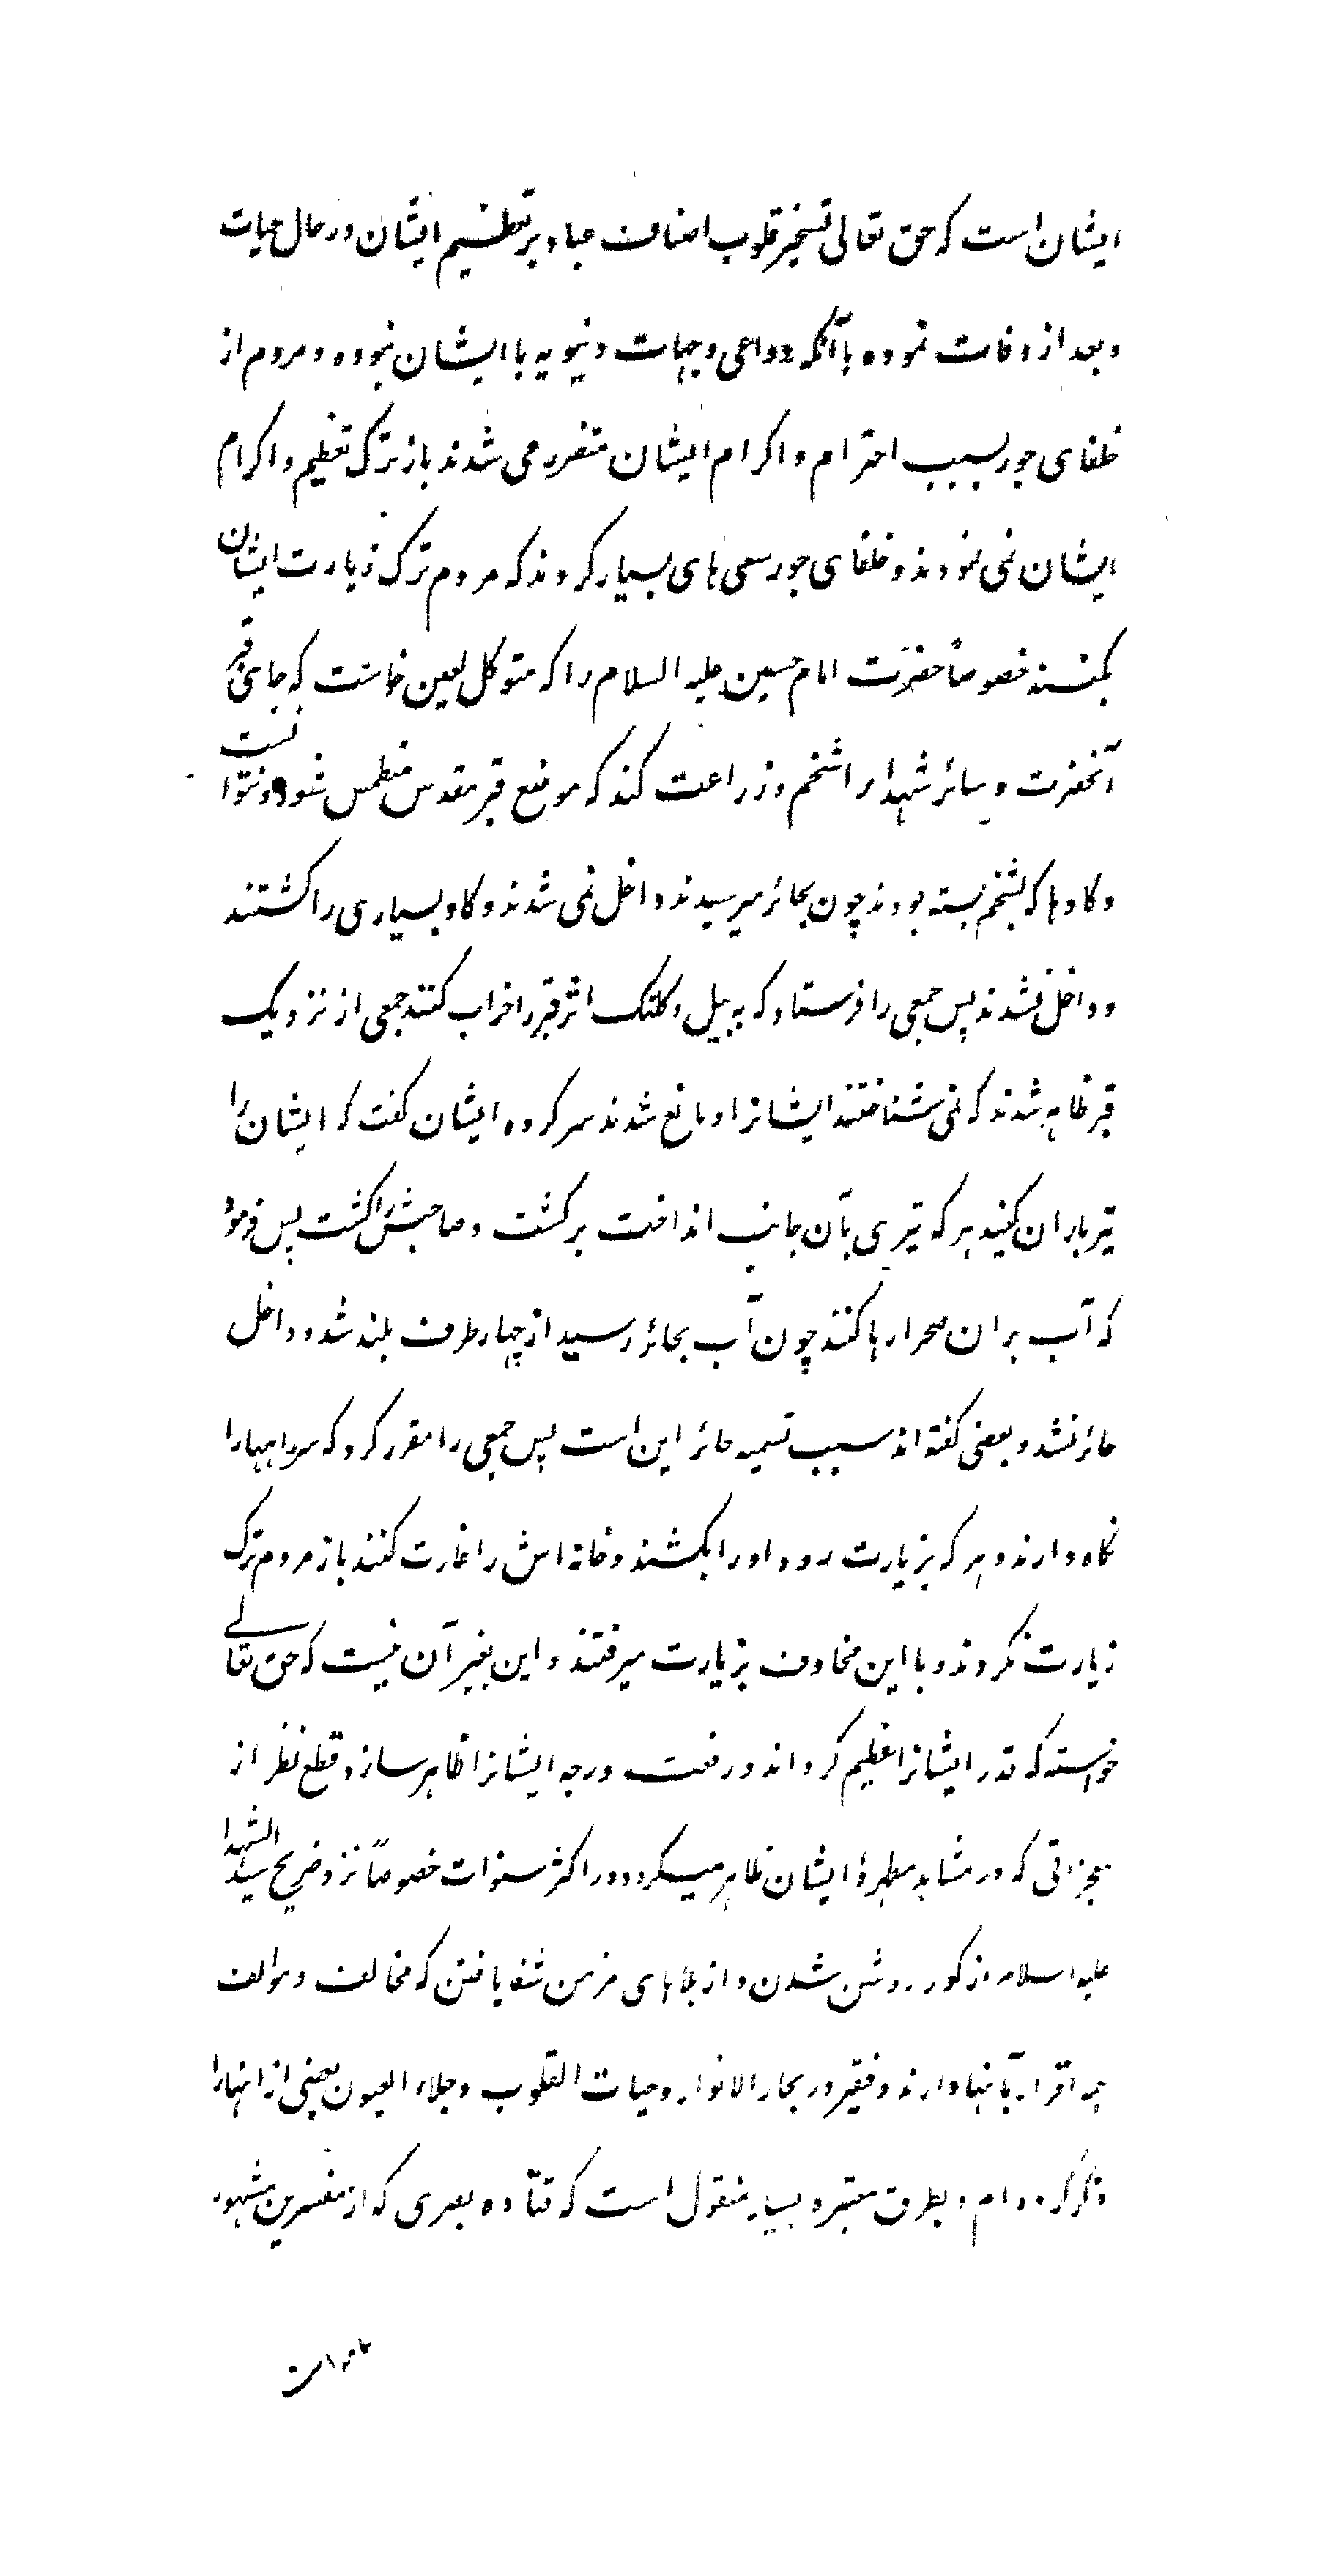 ایشان است که حق تعالی تسخیر قلوب اصناف عباد بر تعظیم ایشان در حال حیات
و بعد از وفات نموده با آنکه دواعی و جهات دنیویه با ایشان نبوده و مردم از
خلفای جور بسبب احترام و اکرام ایشان متضرر می شدند باز ترک تعظیم و اکرام
ایشان نمی نمودند و خلفای جور سعی های بسیار کردند که مردم ترک زیارت ایشان
بکنند خصوصاً حضرت امام حسین علیه السلام را که متوکل لعین خواست که جای قبر
آنحضرت و سائر شهدا را شخم و زراعت کند که موضع قبر مقدس منطمس شود و نتوانست
و گاوها که بشخم بسته بودند چون بحائر میرسیدند داخل نمی شدند و گاو بسیاری را کشتند
و داخل نشدند پس جمعی را فرستاد که به بیل و کلنگ اثر قبر را خراب کنند جمعی از نزدیک
قبر ظاهر شدند که نمی شناختند ایشانرا و مانع شدند سرکرده ایشان گفت که ایشان را
تیر باران کنید هر که تیری بآن جانب انداخت برگشت و صاحبش را کشت پس فرمود
که آب بر ان صحرا رها کنند چون آب بحائر رسید از چهار طرف بلند شد و داخل
حائر نشد و بعضی گفته اند سبب تسمیه حائر این است پس جمعی را مقرر کرد که سر راهها را
نگاه دارند و هر که بزیارت رود او را بکشند و خانه اش را غارت کنند باز مردم ترک
زیارت نکردند و با این مخاوف بزیارت میرفتند و این بغیر آن نیست که حق تعالے
خواسته که قدر ایشانرا عظیم گرداند و رفعت درجه ایشانرا ظاهر سازد قطع نظر از
معجزاتی که در مشاهد مطهرۀ ایشان ظاهر میگردد در اکثر سنوات خصوصاً نزد ضریح سید الشهدا
علیه السلام از کور روشن شدن و از بلاهای مزمن شفا یافتن که مخالف و موالف
همه اقرار بآنها دارند و فقیر در بحار الانوار و حیات القلوب و جلاء العیون بعضی از انها را
ذکر کرده ام و بطرق معتبره بسیار منقول است که قتاده بصری که از مفسرین مشهور